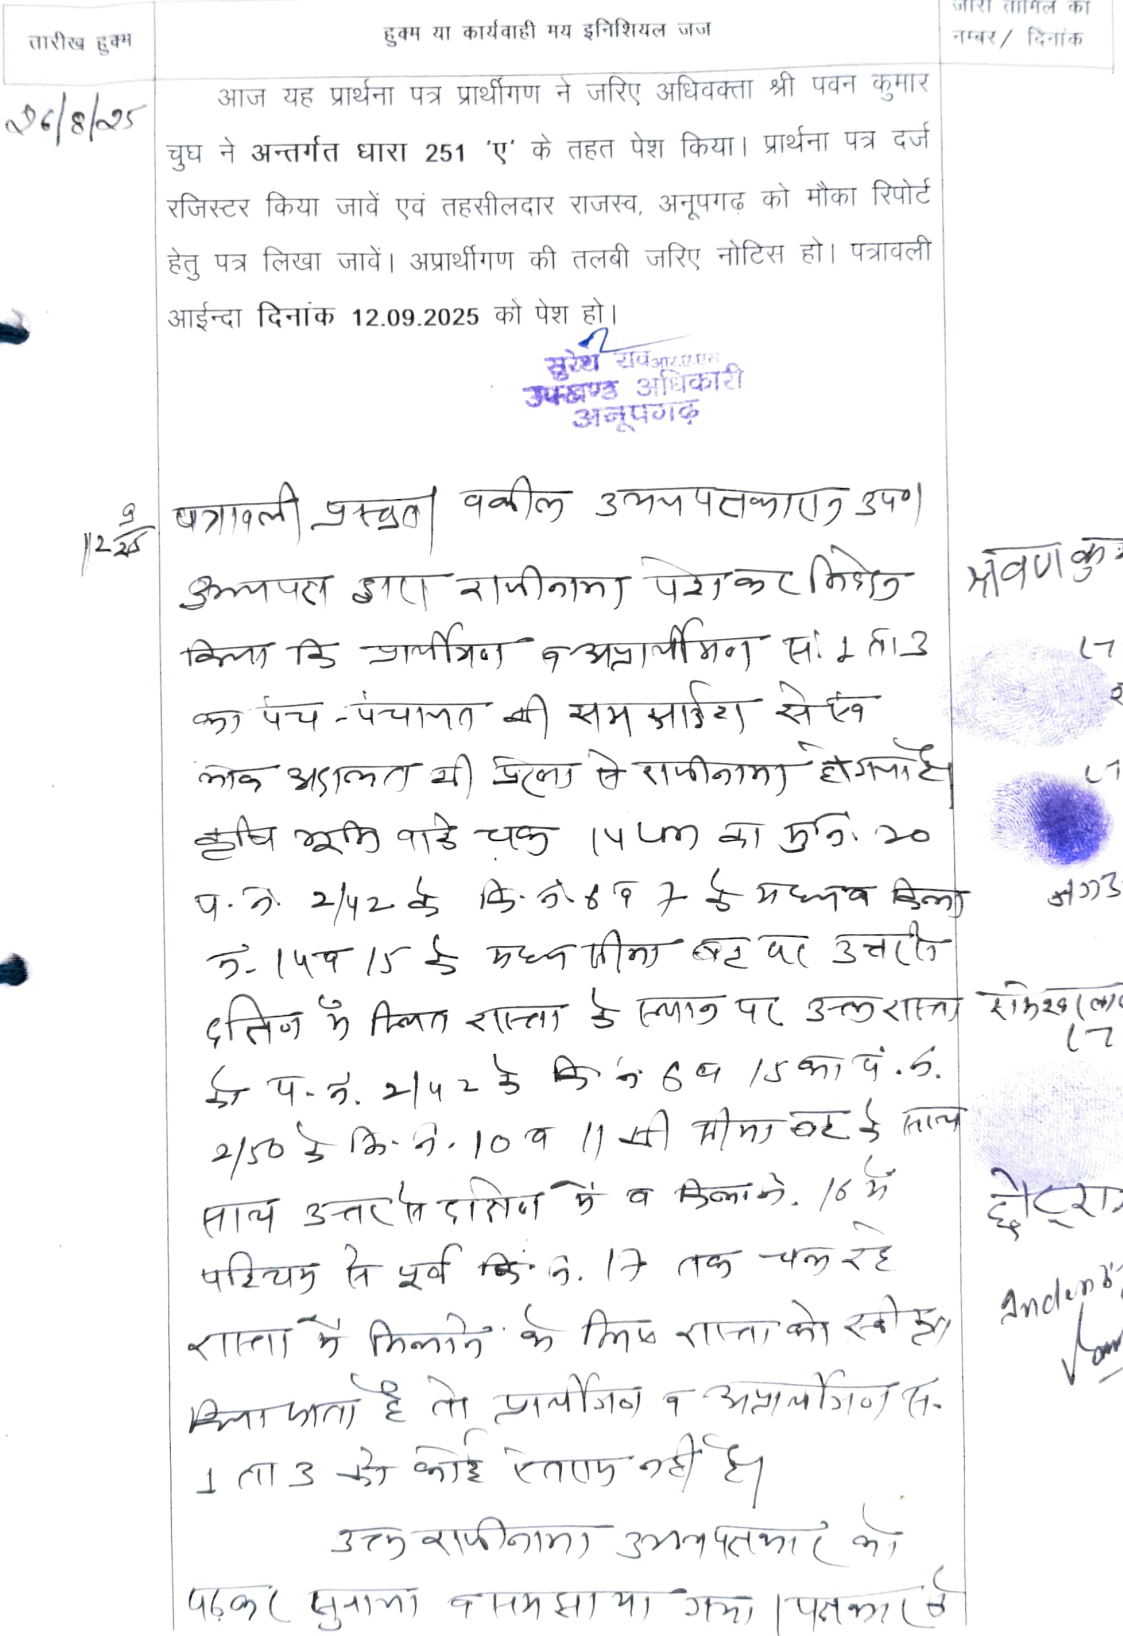 तारीख हुक्म
हुक्म या कार्यवाही मय इनिशियल जज
जारी तामिल का
नम्बर/ दिनांक
26/8/25
आज यह प्रार्थना पत्र प्रार्थीगण ने जरिए अधिवक्ता श्री पवन कुमार
चुघ ने अन्तर्गत धारा 251 'ए' के तहत पेश किया। प्रार्थना पत्र दर्ज
रजिस्टर किया जावें एवं तहसीलदार राजस्व, अनूपगढ़ को मौका रिपोर्ट
हेतु पत्र लिखा जावें। अप्रार्थीगण की तलबी जरिए नोटिस हो। पत्रावली
आईन्दा दिनांक 12.09.2025 को पेश हो।
सुरेश राव आर.ए.एस
उपखण्ड अधिकारी
अनूपगढ़
12 9/25
पत्रावली प्रस्तुत। वकील उभयपक्षकारान उप०।
उभयपक्ष द्वारा राजीनामा पेश कर निवेदन
किया कि प्रार्थीगण व अप्रार्थीगण सं. 1 ता 3
का पंच-पंचायत की समझाईश से एवं
लोक अदालत की प्रेरणा से राजीनामा हो गया है।
कृषि भूमि वाके चक 14 का मु.नं. 20
प.नं. 2/42 के कि.नं. 6 व 7 के मध्य व किला
नं. 14 व 15 के मध्य सीमा बट पर उत्तर से
दक्षिण में स्थित रास्ता के स्थान पर उक्त रास्ता
को प.नं. 2/42 के कि.नं. 6 व 15 का पं.नं.
2/50 के कि.नं. 10 व 11 की सीमा बट के साथ
साथ उत्तर से दक्षिण में व किला नं. 16 में
पश्चिम से पूर्व कि.नं. 17 तक चल रहे
रास्ता में मिलाने के लिए रास्ता को स्वीकृत
किया जाता है तो प्रार्थीगण व अप्रार्थीगण सं.
1 ता 3 को कोई ऐतराज नहीं है।
उक्त राजीनामा उभयपक्षकार को
पढ़कर सुनाया व समझाया गया। पक्षकार ने
श्रवण कु
छोटूरा